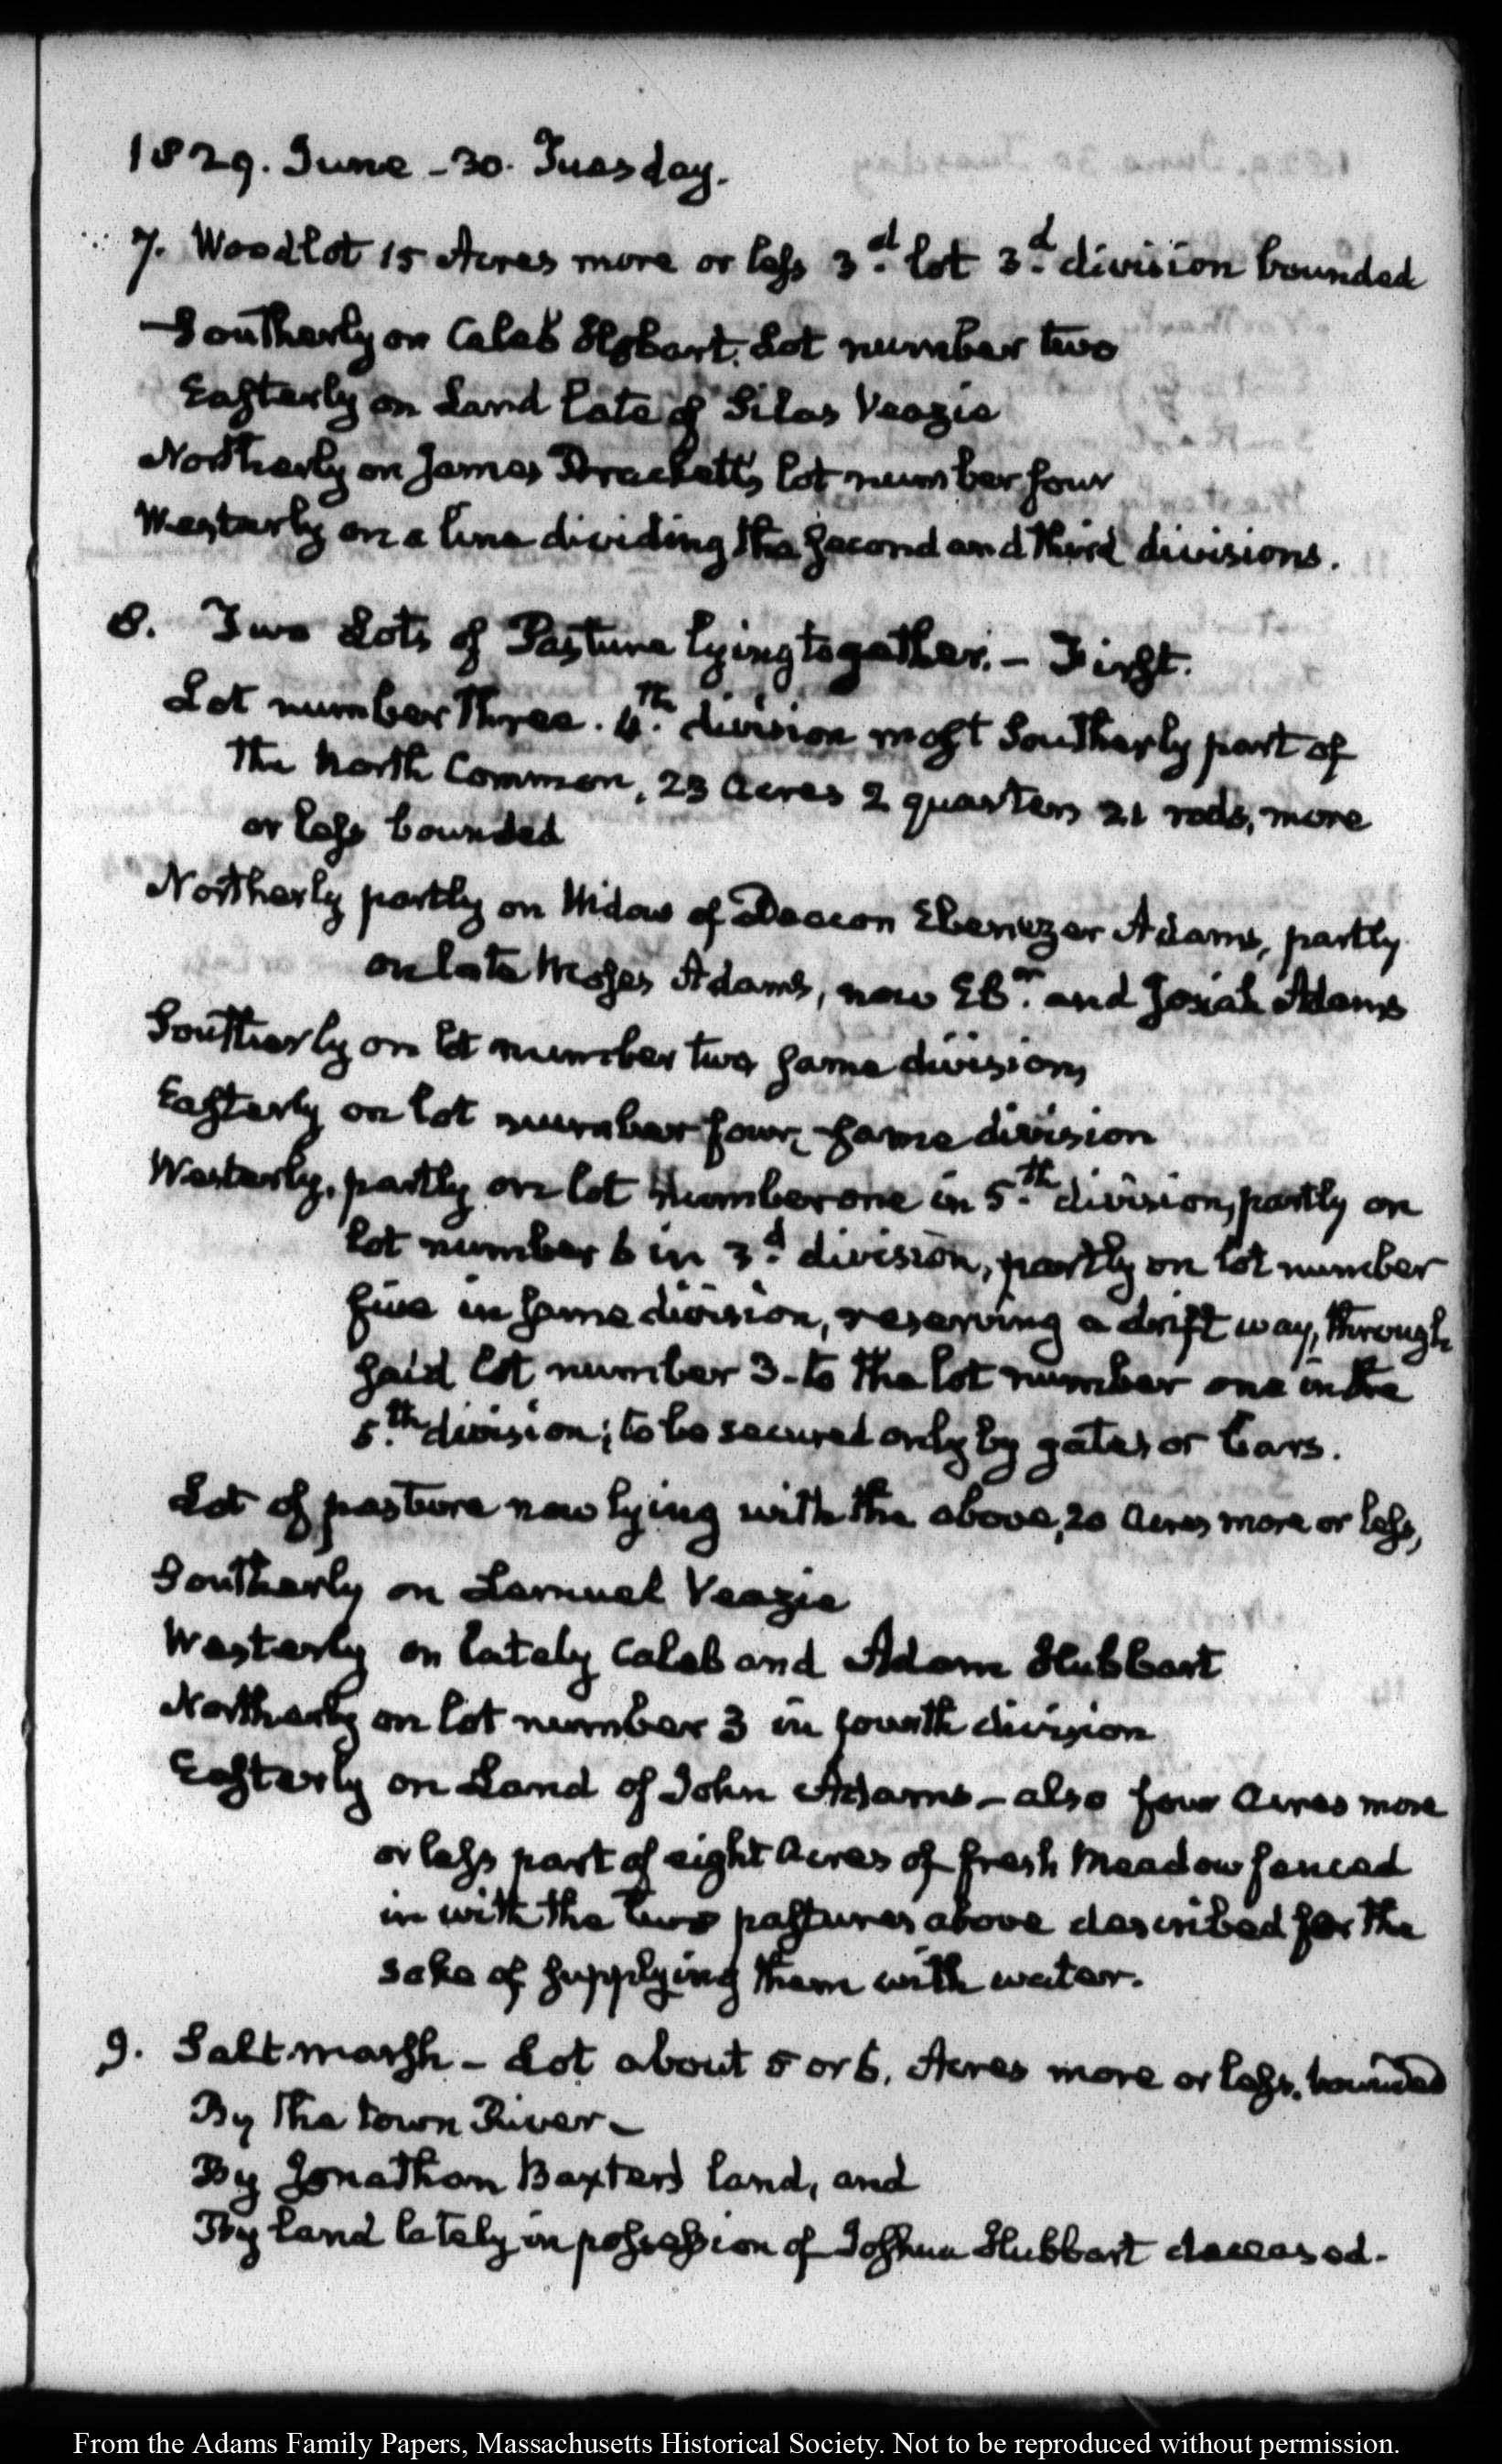 1829. June - 30. Tuesday.
7. Woodlot 15 Acres more or less 3.d lot 3.d division bounded
Southerly on Caleb Hobart. Lot number two
Easterly on Land late of Silas Veazie
Northerly on James Brackett's lot number four
Westerly on a line dividing the second and third divisions.
8. Two Lots of Pasture lying together. - First.
Lot number Three. 4.th division most Southerly part of
the North Common, 23 Acres 2 quarters 21 rods, more
or less bounded
Northerly partly on Widow of Deacon Ebenezer Adams, partly
on late Moses Adams, now Eb.r and Josiah Adams
Southerly on lot number two same division,
Easterly on lot number four, same division
Westerly, partly on lot number one in 5.th division, partly on
lot number 6 in 3.d division, partly on lot number
five in same division, reserving a drift way, through
said lot number 3 - to the lot number one in the
5.th division; to be secured only by gates or bars.
Lot of pasture now lying with the above, 20 Acres more or less,
Southerly on Lemuel Veazie
Westerly on lately Caleb and Adam Hubbart
Northerly on lot number 3 in fourth division
Easterly on Land of John Adams - also four Acres more
or less part of eight Acres of fresh Meadow fenced
in with the two pastures above described for the
sake of supplying them with water.
9. Salt marsh - Lot about 5 or 6. Acres more or less, bounded
By the town River -
By Jonathan Baxters land, and
By land lately in possession of Joshua Hubbart deceased.
From the Adams Family Papers, Massachusetts Historical Society. Not to be reproduced without permission.